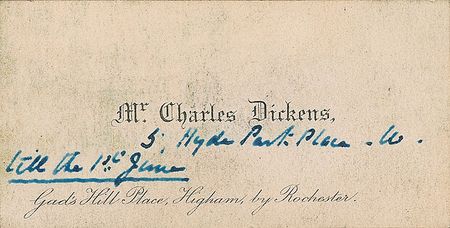 Mr. Charles Dickens,
5, Hyde Park Place. W.
till the 1st June
Gad's Hill Place, Higham, by Rochester.